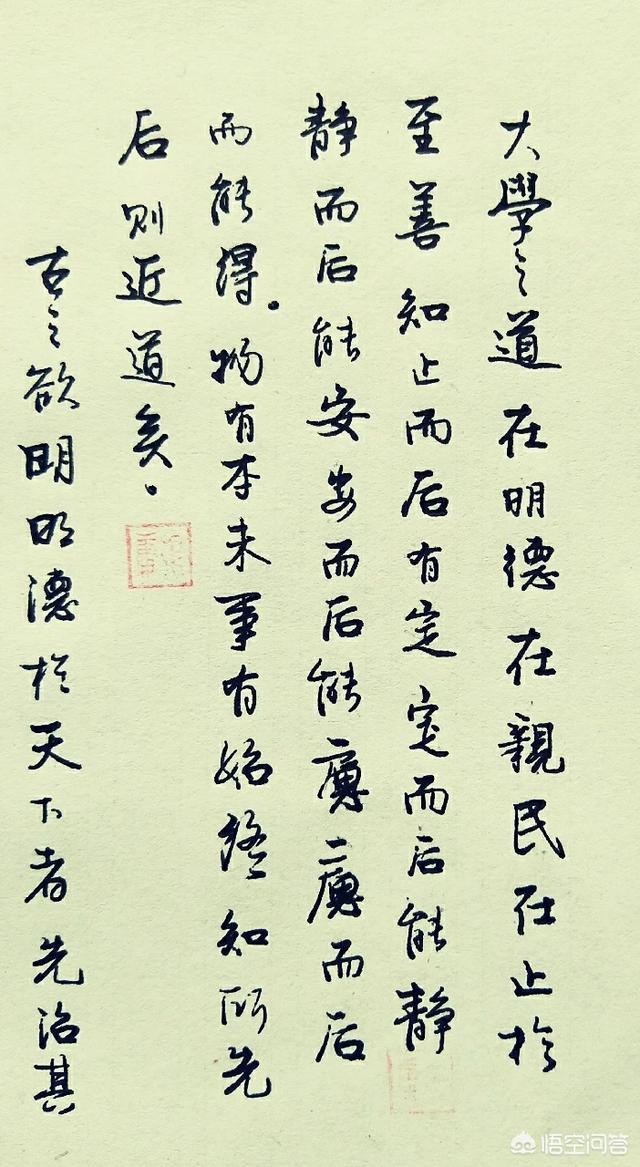 大學之道在明德在親民在止於
至善知止而后有定定而后能靜
靜而后能安安而后能慮慮而后
而能得。物有本末事有始終知所先
后則近道矣。
古之欲明明德於天下者先治其
悟空问答